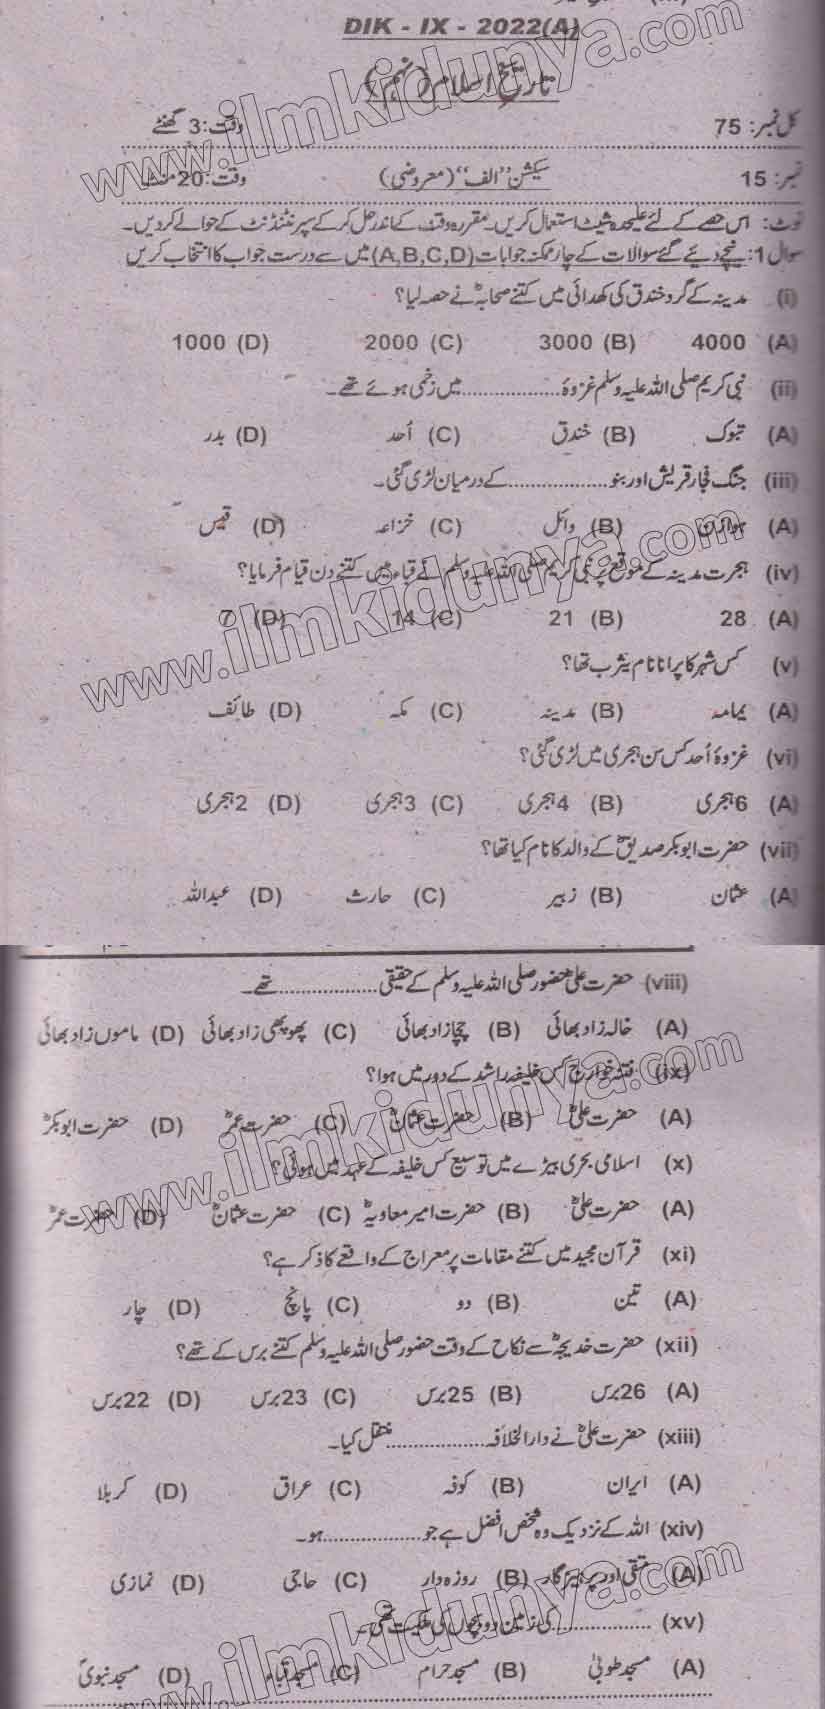 DIK - IX - 2022(A)
تاریخ اسلام (نہم)
کل نمبر: 75 وقت: 3 گھنٹے
نمبر: 15 سیکشن "الف" (معروضی) وقت: 20 منٹ
نوٹ: اس حصے کے لئے علیحدہ شیٹ استعمال کریں۔ مقررہ وقت کے اندر حل کر کے سپرنٹنڈنٹ کے حوالے کر دیں۔
سوال 1: نیچے دیئے گئے سوالات کے چار ممکنہ جوابات (A,B,C,D) میں سے درست جواب کا انتخاب کریں
(i) مدینہ کے گرد خندق کی کھدائی میں کتنے صحابہؓ نے حصہ لیا؟
(A) 4000 (B) 3000 (C) 2000 (D) 1000
(ii) نبی کریم صلی اللہ علیہ وسلم غزوۂ .................. میں زخمی ہوئے تھے۔
(A) تبوک (B) خندق (C) اُحد (D) بدر
(iii) جنگ فجار قریش اور بنو .................. کے درمیان لڑی گئی۔
(A) ہوازن (B) وائل (C) خزاعہ (D) قیس
(iv) ہجرت مدینہ کے موقع پر نبی کریم صلی اللہ علیہ وسلم نے قباء میں کتنے دن قیام فرمایا؟
(A) 28 (B) 21 (C) 14 (D) 7
(v) کس شہر کا پرانا نام یثرب تھا؟
(A) یمامہ (B) مدینہ (C) مکہ (D) طائف
(vi) غزوۂ اُحد کس سن ہجری میں لڑی گئی؟
(A) 6 ہجری (B) 4 ہجری (C) 3 ہجری (D) 2 ہجری
(vii) حضرت ابوبکر صدیقؓ کے والد کا نام کیا تھا؟
(A) عثمان (B) زبیر (C) حارث (D) عبداللہ
(viii) حضرت علیؓ حضور صلی اللہ علیہ وسلم کے حقیقی .................. تھے۔
(A) خالہ زاد بھائی (B) چچا زاد بھائی (C) پھوپھی زاد بھائی (D) ماموں زاد بھائی
(ix) فتنہ خوارج کس خلیفہ راشد کے دور میں ہوا؟
(A) حضرت علیؓ (B) حضرت عثمانؓ (C) حضرت عمرؓ (D) حضرت ابوبکرؓ
(x) اسلامی بحری بیڑے میں توسیع کس خلیفہ کے عہد میں ہوئی؟
(A) حضرت علیؓ (B) حضرت امیر معاویہؓ (C) حضرت عثمانؓ (D) حضرت عمرؓ
(xi) قرآن مجید میں کتنے مقامات پر معراج کے واقعے کا ذکر ہے؟
(A) تین (B) دو (C) پانچ (D) چار
(xii) حضرت خدیجہؓ سے نکاح کے وقت حضور صلی اللہ علیہ وسلم کتنے برس کے تھے؟
(A) 26 برس (B) 25 برس (C) 23 برس (D) 22 برس
(xiii) حضرت علیؓ نے دارالخلافہ .................. منتقل کیا۔
(A) ایران (B) کوفہ (C) عراق (D) کربلا
(xiv) اللہ کے نزدیک وہ شخص افضل ہے جو .................. ہو۔
(A) متقی اور پرہیزگار (B) روزہ دار (C) حاجی (D) نمازی
(xv) .................. کی زمین دو بچوں کی ملکیت تھی۔
(A) مسجد طوبیٰ (B) مسجد حرام (C) مسجد قباء (D) مسجد نبویؐ
www.ilmkidunya.com
www.ilmkidunya.com
www.ilmkidunya.com
www.ilmkidunya.com